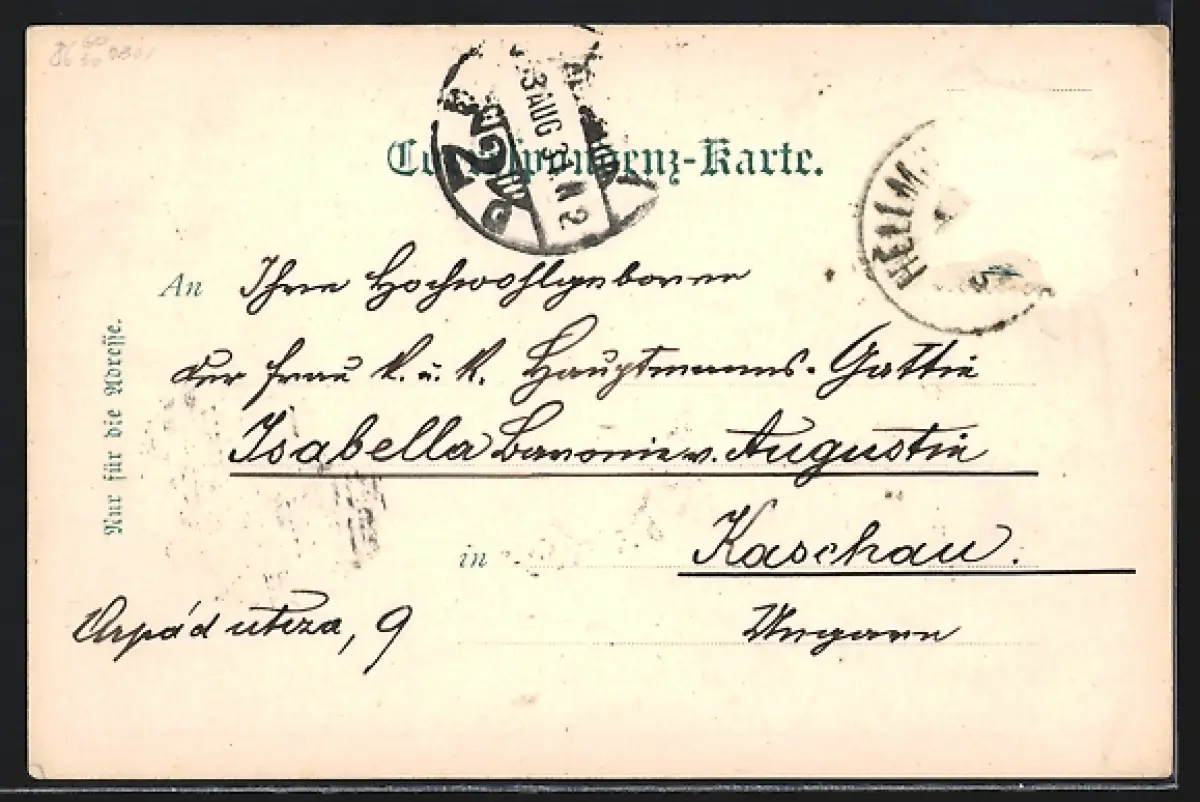 Correspondenz-Karte.
3 AUG
HELLM
An Ihre Hochwohlgeboren
der Frau k. u. k. Hauptmanns-Gattin
Isabella Baronin v. Augustin
in Kaschau.
Árpád utcza, 9 Ungarn
Nur für die Adresse.